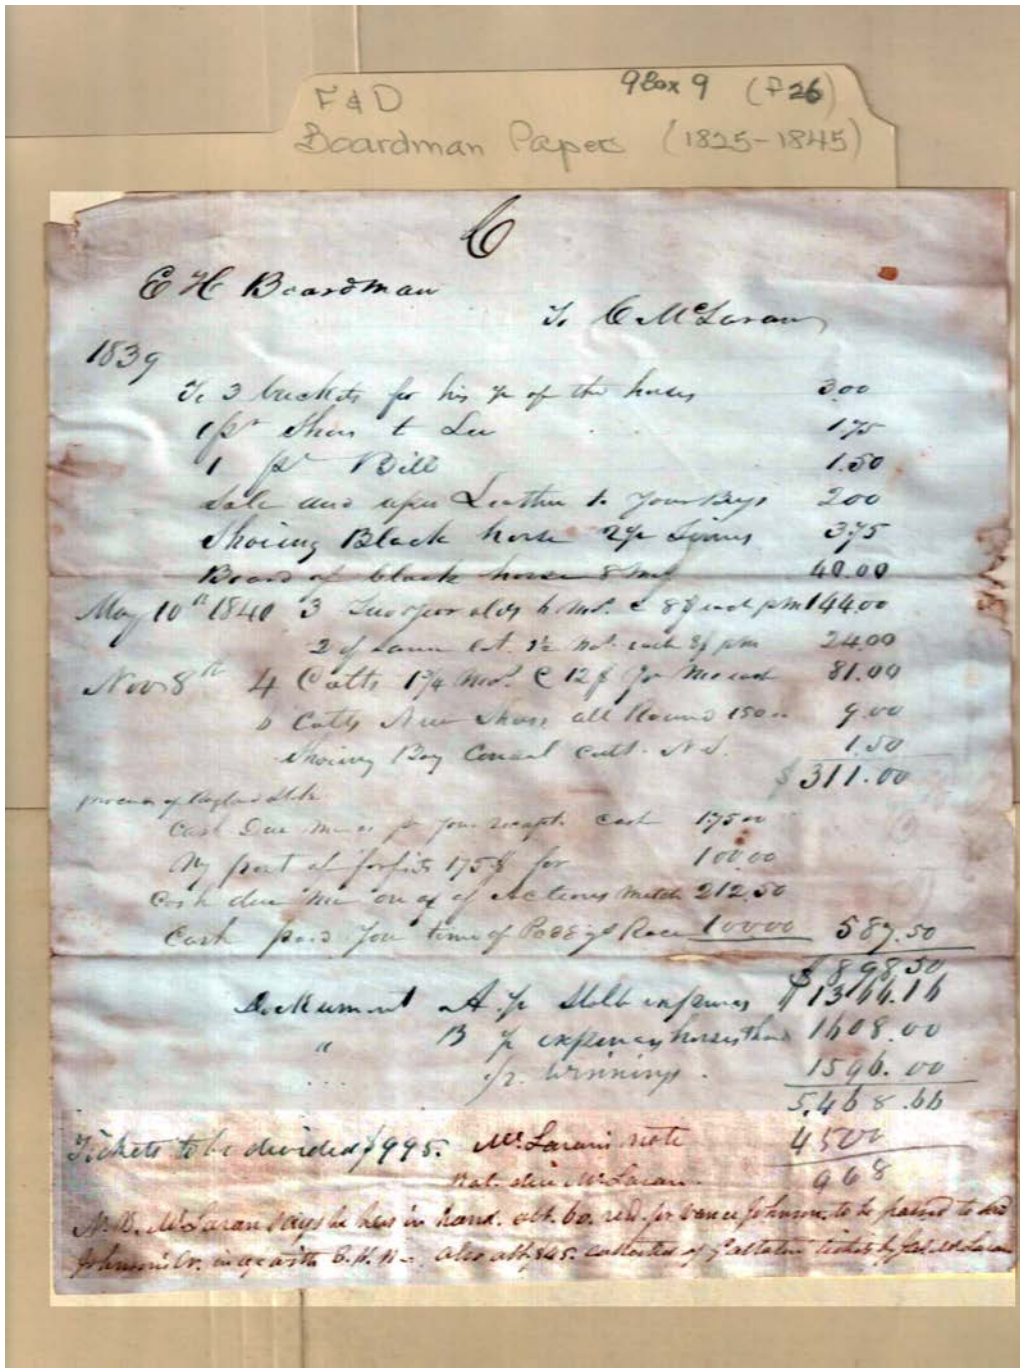 F & D 9 Box 9 (F 26)
Boardman Papers (1825-1845)
C
E H Boardman
To C McLaran
1839
To 3 buckets for his of the horses 3.00
1 pr Shoes to Lee 1.75
1 pr Bill 1.50
Sole and uper Leather to your Boys 2.00
Shoeing Black horse 2 Times 3.75
Board of black horse 8 40.00
May 10th 1840 3 Two year olds 6 Mos. @ 8$ each pm 144.00
2 of Same 1½ Mo. each 8$ pm 24.00
Nov 8th 4 Colts 1¾ Mos. @ 12$ pr Mo each 81.00
6 Colts New Shoes all Round 150 9.00
Shoeing Bay Consul Colt. N.S. 1.50
$311.00
Cash Due me as pr your receipt Cash 175.00
My part of forfits 175$ for 100.00
Cash due me on of Acteons Match 212.50
Cash paid you time of Race 100.00 587.50
$898.50
Dockument A pr Stable expenses $1366.16
" B pr expenses horses 1608.00
... pr. winnings. 1596.00
5,468.66
Tickets to be divided $995. McLaran's note 4500
Bal. due McLaran. 968
N.B. McLaran says he has in hand. abt. 60. recd. for Johnson. to be paid to
Johnson in with E.H.B - also abt $45. collected of tickets by McLaran